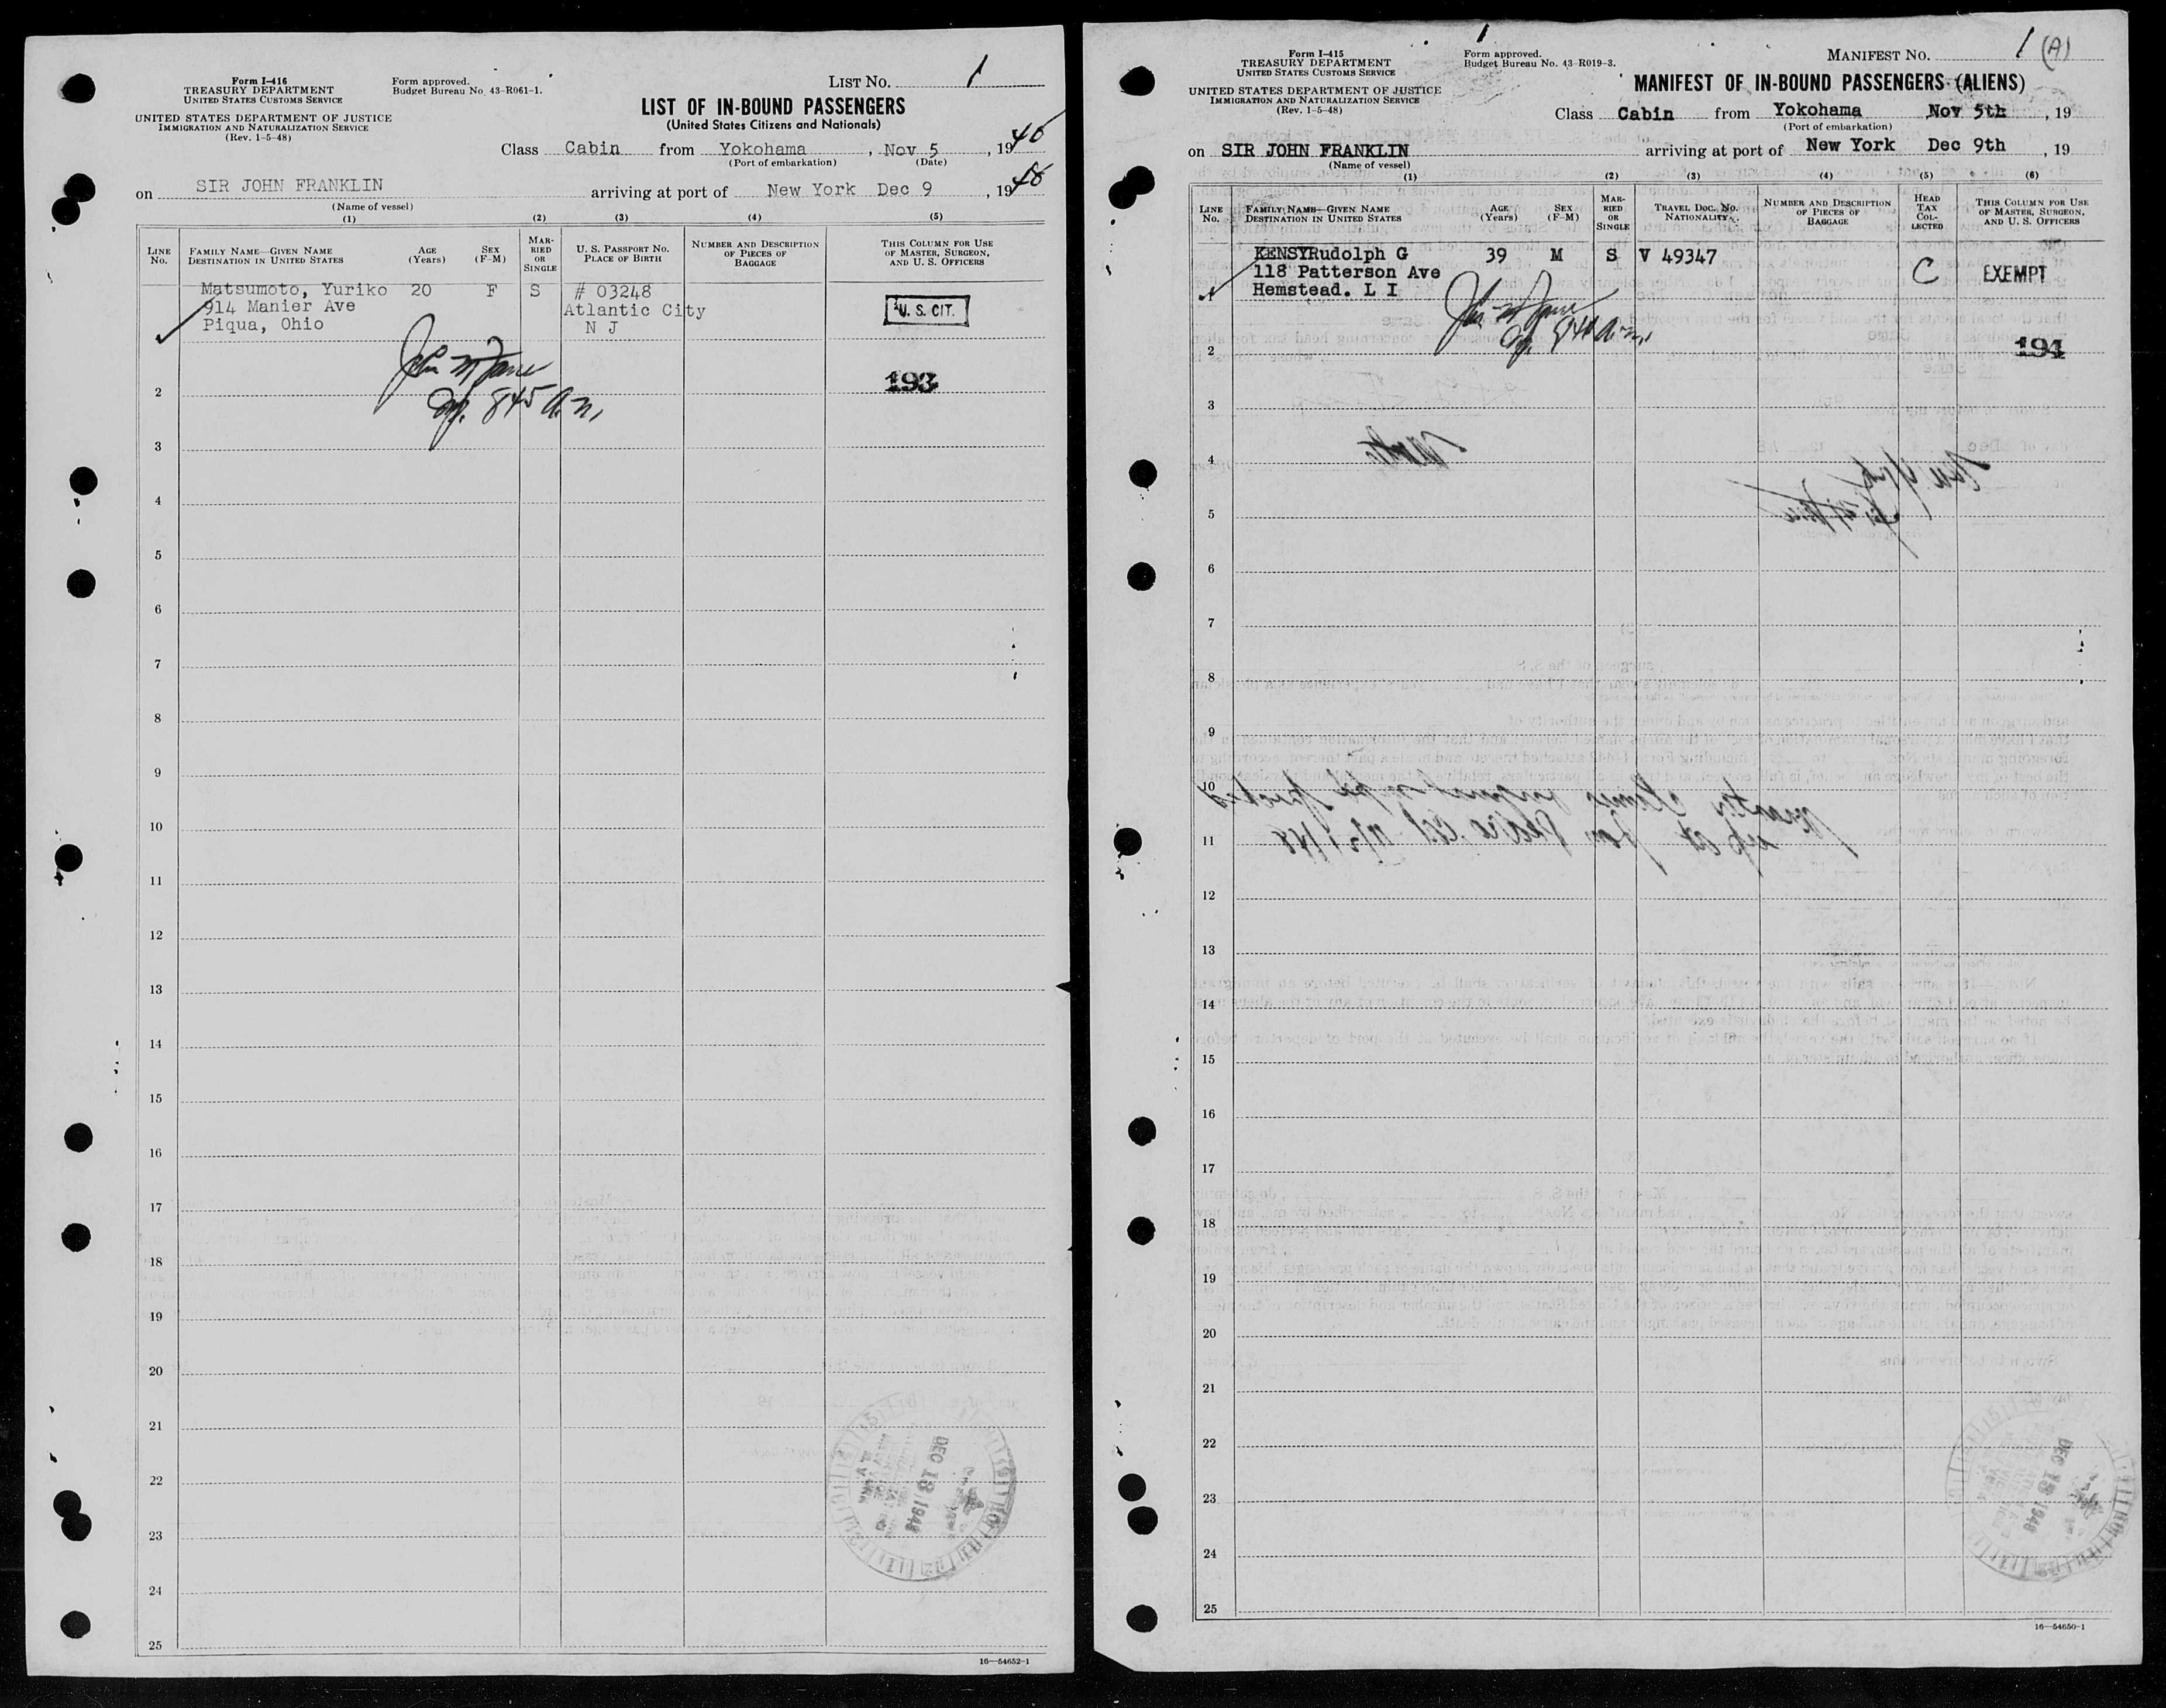 Form I-416
TREASURY DEPARTMENT
UNITED STATES CUSTOMS SERVICE
UNITED STATES DEPARTMENT OF JUSTICE
IMMIGRATION AND NATURALIZATION SERVICE
(Rev. 1-5-48)
Form approved.
Budget Bureau No. 43-R061-1.
LIST NO. 1
LIST OF IN-BOUND PASSENGERS
(United States Citizens and Nationals)
Class Cabin from Yokohama, Nov 5, 1948
(Port of embarkation) (Date)
on SIR JOHN FRANKLIN arriving at port of New York Dec 9, 1948
(Name of vessel)
(1) (2) (3) (4) (5)
LINE No. FAMILY NAME—GIVEN NAME DESTINATION IN UNITED STATES AGE (Years) SEX (F-M) MARRIED OR SINGLE U. S. PASSPORT NO. PLACE OF BIRTH NUMBER AND DESCRIPTION OF PIECES OF BAGGAGE THIS COLUMN FOR USE OF MASTER, SURGEON, AND U. S. OFFICERS
Matsumoto, Yuriko 20 F S # 03248
914 Manier Ave Atlantic City U. S. CIT.
Piqua, Ohio N J
193
845 a.m.
2
3
4
5
6
7
8
9
10
11
12
13
14
15
16
17
18
19
20
21
22
23
24
25
DEC 13 1948
16—54652-1
Form I-415
TREASURY DEPARTMENT
UNITED STATES CUSTOMS SERVICE
UNITED STATES DEPARTMENT OF JUSTICE
IMMIGRATION AND NATURALIZATION SERVICE
(Rev. 1-5-48)
1
Form approved.
Budget Bureau No. 43-R019-3.
MANIFEST NO. 1 (A)
MANIFEST OF IN-BOUND PASSENGERS (ALIENS)
Class Cabin from Yokohama Nov 5th, 19
(Port of embarkation)
on SIR JOHN FRANKLIN arriving at port of New York Dec 9th, 19
(Name of vessel)
(1) (2) (3) (4) (5) (6)
LINE No. FAMILY NAME—GIVEN NAME DESTINATION IN UNITED STATES AGE (Years) SEX (F-M) MARRIED OR SINGLE TRAVEL DOC. NO. NATIONALITY NUMBER AND DESCRIPTION OF PIECES OF BAGGAGE HEAD TAX COLLECTED THIS COLUMN FOR USE OF MASTER, SURGEON, AND U. S. OFFICERS
KENSYRudolph G 39 M S V 49347
118 Patterson Ave C EXEMPT
1 Hemstead. L I
194
2
3
4
5
6
7
8
9
10
11
12
13
14
15
16
17
18
19
20
21
22
23
24
25
DEC 13 1948
16—54650-1